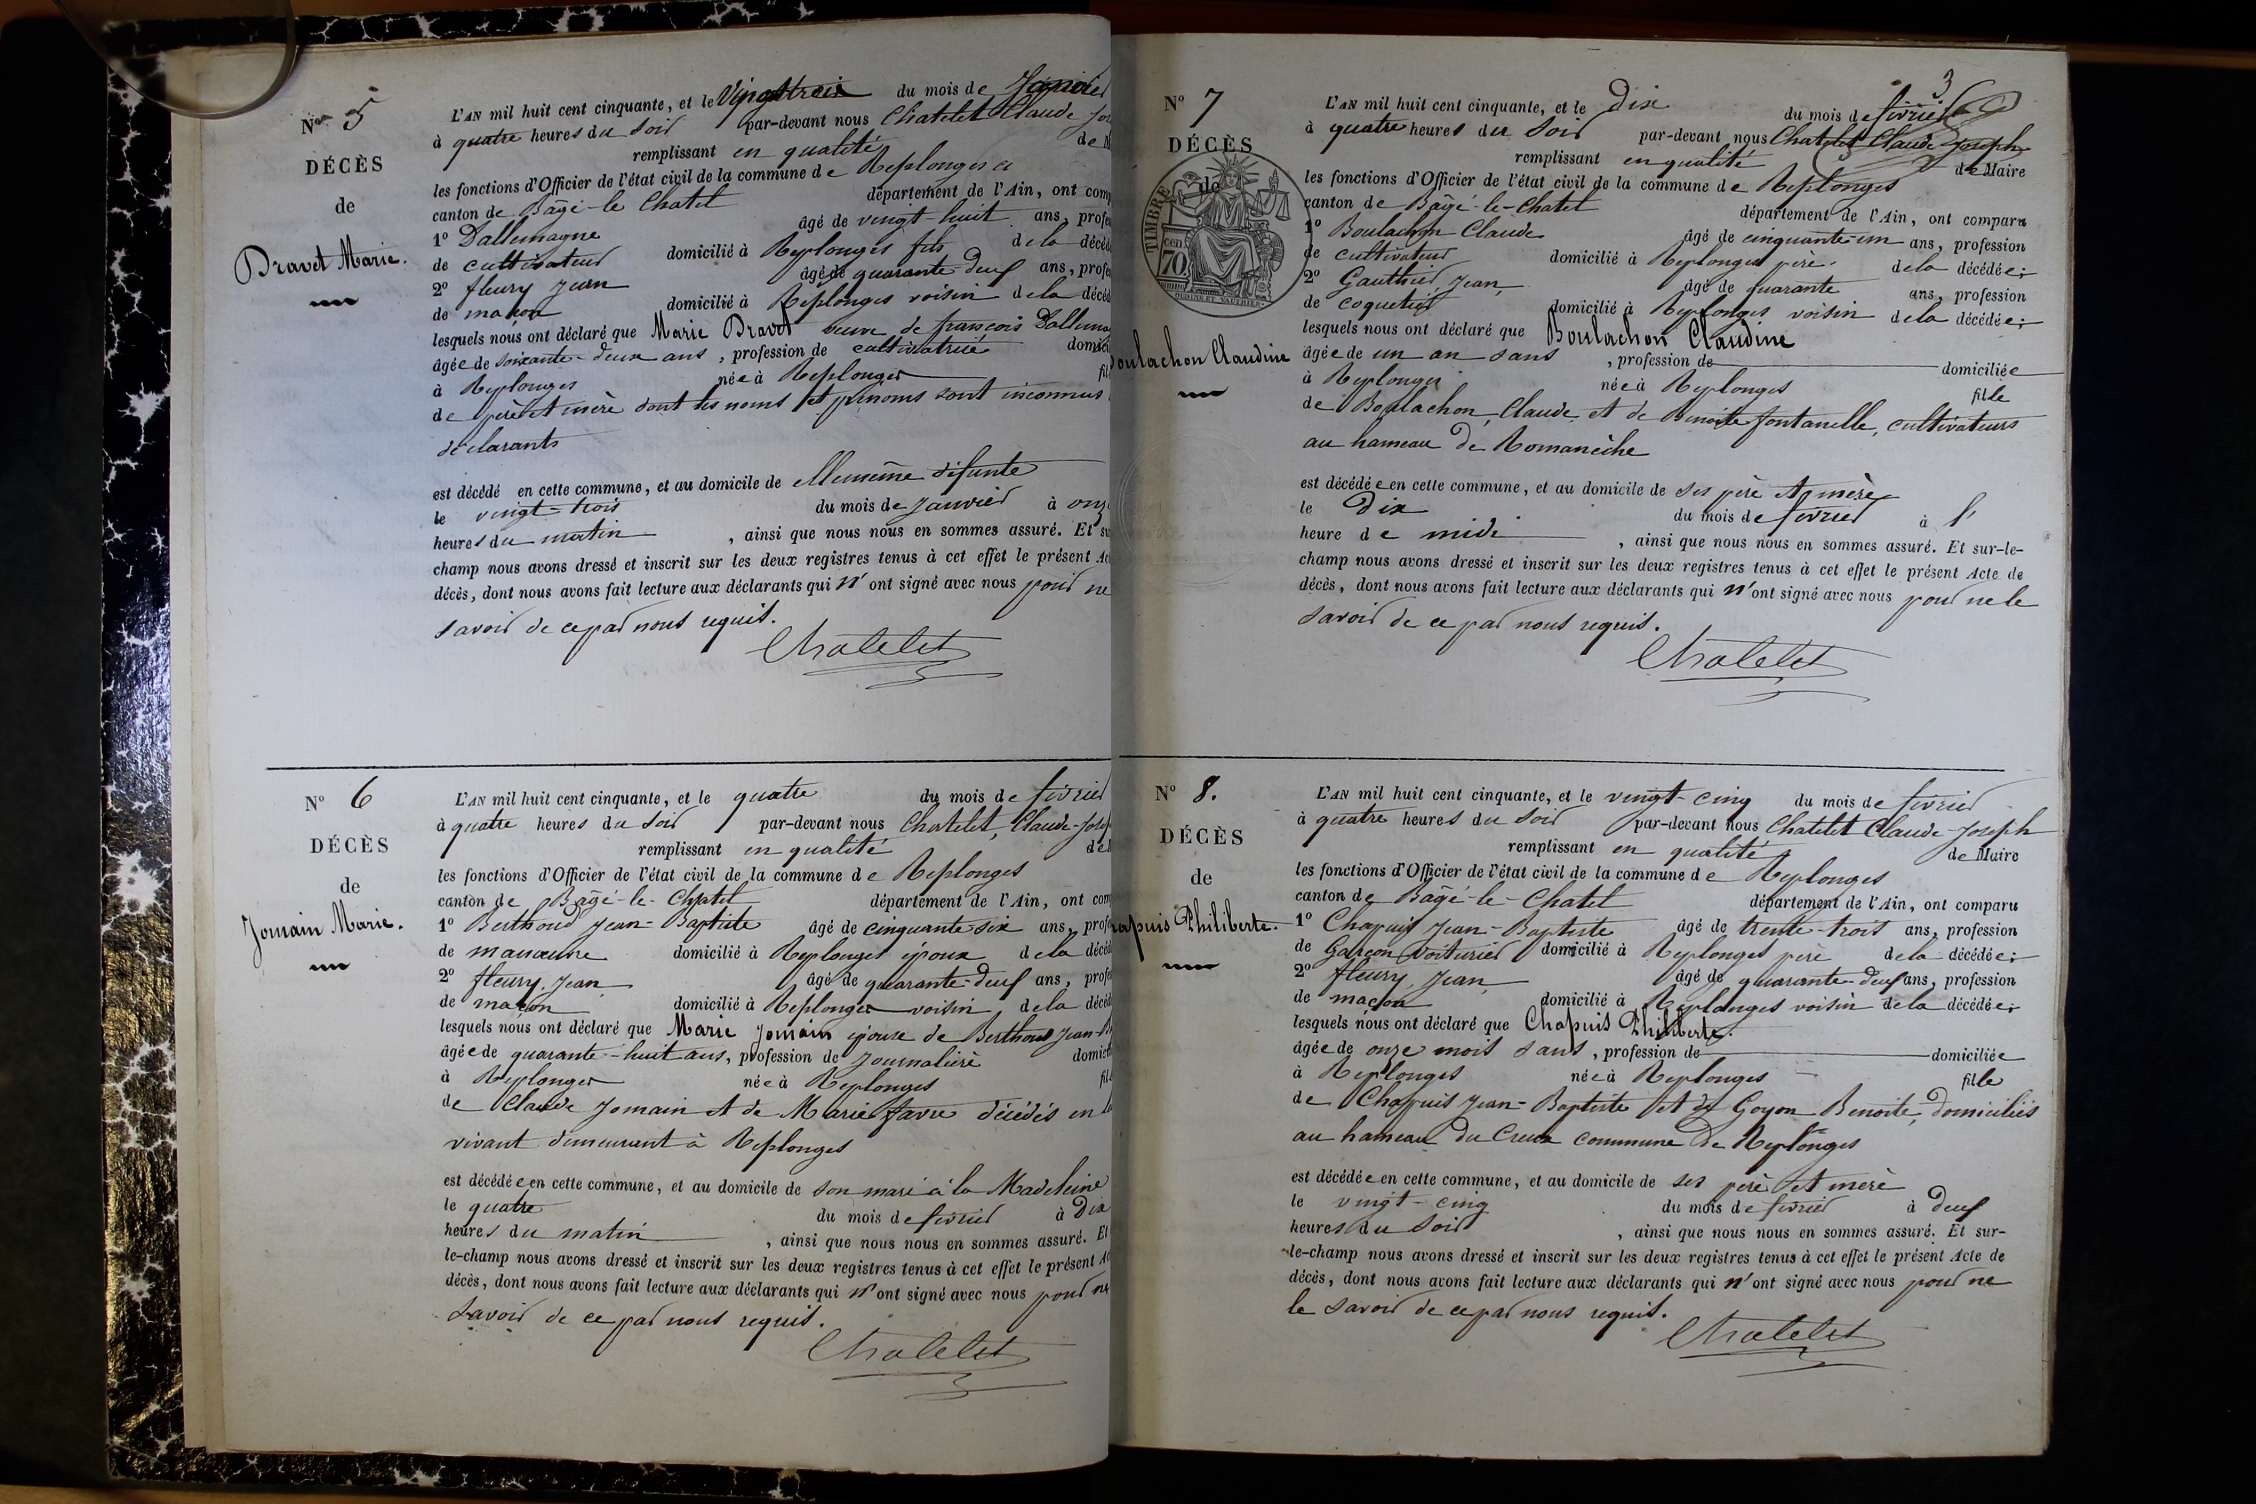 N° 5
DÉCÈS
de
Dravet Marie.
L'AN mil huit cent cinquante, et le Vingt trois du mois de Janvier
à quatre heures du soir par-devant nous Chatelet Claude Jos
remplissant en qualité de M
les fonctions d'Officier de l'état civil de la commune de Replonges
canton de Bâgé-le Chatel département de l'Ain, ont comp
1° Dallemagne âgé de vingt-huit ans, profe
de cultivateur domicilié à Replonges fils de la décéd
2° fleury Jean âgé de quarante-deux ans, profe
de maçon domicilié à Replonges voisin de la décéd
lesquels nous ont déclaré que Marie Dravet veuve de françois Dallema
âgée de soixante-deux ans, profession de cultivatrice domici
à Replonges née à Replonges fil
de père et mère dont les noms et prénoms sont inconnus
déclarants
est décédé en cette commune, et au domicile de elle même défunte
le vingt-trois du mois de Janvier à onze
heures du matin, ainsi que nous nous en sommes assuré. Et su
champ nous avons dressé et inscrit sur les deux registres tenus à cet effet le présent Ac
décès, dont nous avons fait lecture aux déclarants qui n'ont signé avec nous pour ne
savoir de ce par nous requis.
Chatelet
N° 6
DÉCÈS
de
Jomain Marie.
L'AN mil huit cent cinquante, et le quatre du mois de février
à quatre heures du soir par-devant nous Chatelet, Claude-Josep
remplissant en qualité de
les fonctions d'Officier de l'état civil de la commune de Replonges
canton de Bâgé-le-Chatel département de l'Ain, ont com
1° Berthoud Jean-Baptiste âgé de cinquante six ans, prof
de manœuvre domicilié à Replonges époux de la décéd
2° fleury Jean âgé de quarante-deux ans, profe
de maçon domicilié à Replonges voisin de la décéd
lesquels nous ont déclaré que Marie Jomain épouse de Berthoud Jean-B
âgée de quarante-huit ans, profession de Journalière domici
à Replonges née à Replonges fil
de Claude Jomain et de Marie favre décédés en le
vivant demeurant à Replonges
est décédée en cette commune, et au domicile de son mari à la Madeleine
le quatre du mois de février à Dix
heures du matin, ainsi que nous nous en sommes assuré. Et
le-champ nous avons dressé et inscrit sur les deux registres tenus à cet effet le présent Ac
décès, dont nous avons fait lecture aux déclarants qui n'ont signé avec nous pour ne
savoir de ce par nous requis.
Chatelet
3
N° 7
DÉCÈS
de
TIMBRE
70 cen
Boulachon Claudine
L'AN mil huit cent cinquante, et le Dix du mois de février
à quatre heures du soir par-devant nous Chatelet Claude Joseph
remplissant en qualité de Maire
les fonctions d'Officier de l'état civil de la commune de Replonges
canton de Bâgé-le-Chatel département de l'Ain, ont comparu
1° Boulachon Claude âgé de cinquante-un ans, profession
de cultivateur domicilié à Replonges père de la décédée;
2° Gauthier, Jean, âgé de quarante ans, profession
de coquetier domicilié à Replonges voisin de la décédée;
lesquels nous ont déclaré que Boulachon Claudine
âgée de un an sans, profession de domiciliée
à Replonges née à Replonges fille
de Boulachon, Claude et de Benoite fontanelle, cultivateurs
au hameau de Romanèche
est décédée en cette commune, et au domicile de ses père et mère
le Dix du mois de février à l'
heure de midi, ainsi que nous nous en sommes assuré. Et sur-le-
champ nous avons dressé et inscrit sur les deux registres tenus à cet effet le présent Acte de
décès, dont nous avons fait lecture aux déclarants qui n'ont signé avec nous pour ne le
savoir de ce par nous requis.
Chatelet
N° 8.
DÉCÈS
de
hapuis Philiberte.
L'AN mil huit cent cinquante, et le vingt-cinq du mois de février
à quatre heures du soir par-devant nous Chatelet Claude-Joseph
remplissant en qualité de Maire
les fonctions d'Officier de l'état civil de la commune de Replonges
canton de Bâgé-le-Chatel département de l'Ain, ont comparu
1° Chapuis Jean-Baptiste âgé de trente-trois ans, profession
de Garçon Voiturier domicilié à Replonges père de la décédée;
2° fleury, Jean âgé de quarante-deux ans, profession
de maçon domicilié à Replonges voisin de la décédée;
lesquels nous ont déclaré que Chapuis Philiberte.
âgée de onze mois sans, profession de domiciliée
à Replonges née à Replonges fille
de Chapuis Jean-Baptiste et de Goyon Benoite, domiciliés
au hameau du Creux commune de Replonges
est décédée en cette commune, et au domicile de ses père et mère
le vingt-cinq du mois de février à Deux
heures du soir, ainsi que nous nous en sommes assuré. Et sur-
le-champ nous avons dressé et inscrit sur les deux registres tenus à cet effet le présent Acte de
décès, dont nous avons fait lecture aux déclarants qui n'ont signé avec nous pour ne
le savoir de ce par nous requis.
Chatelet